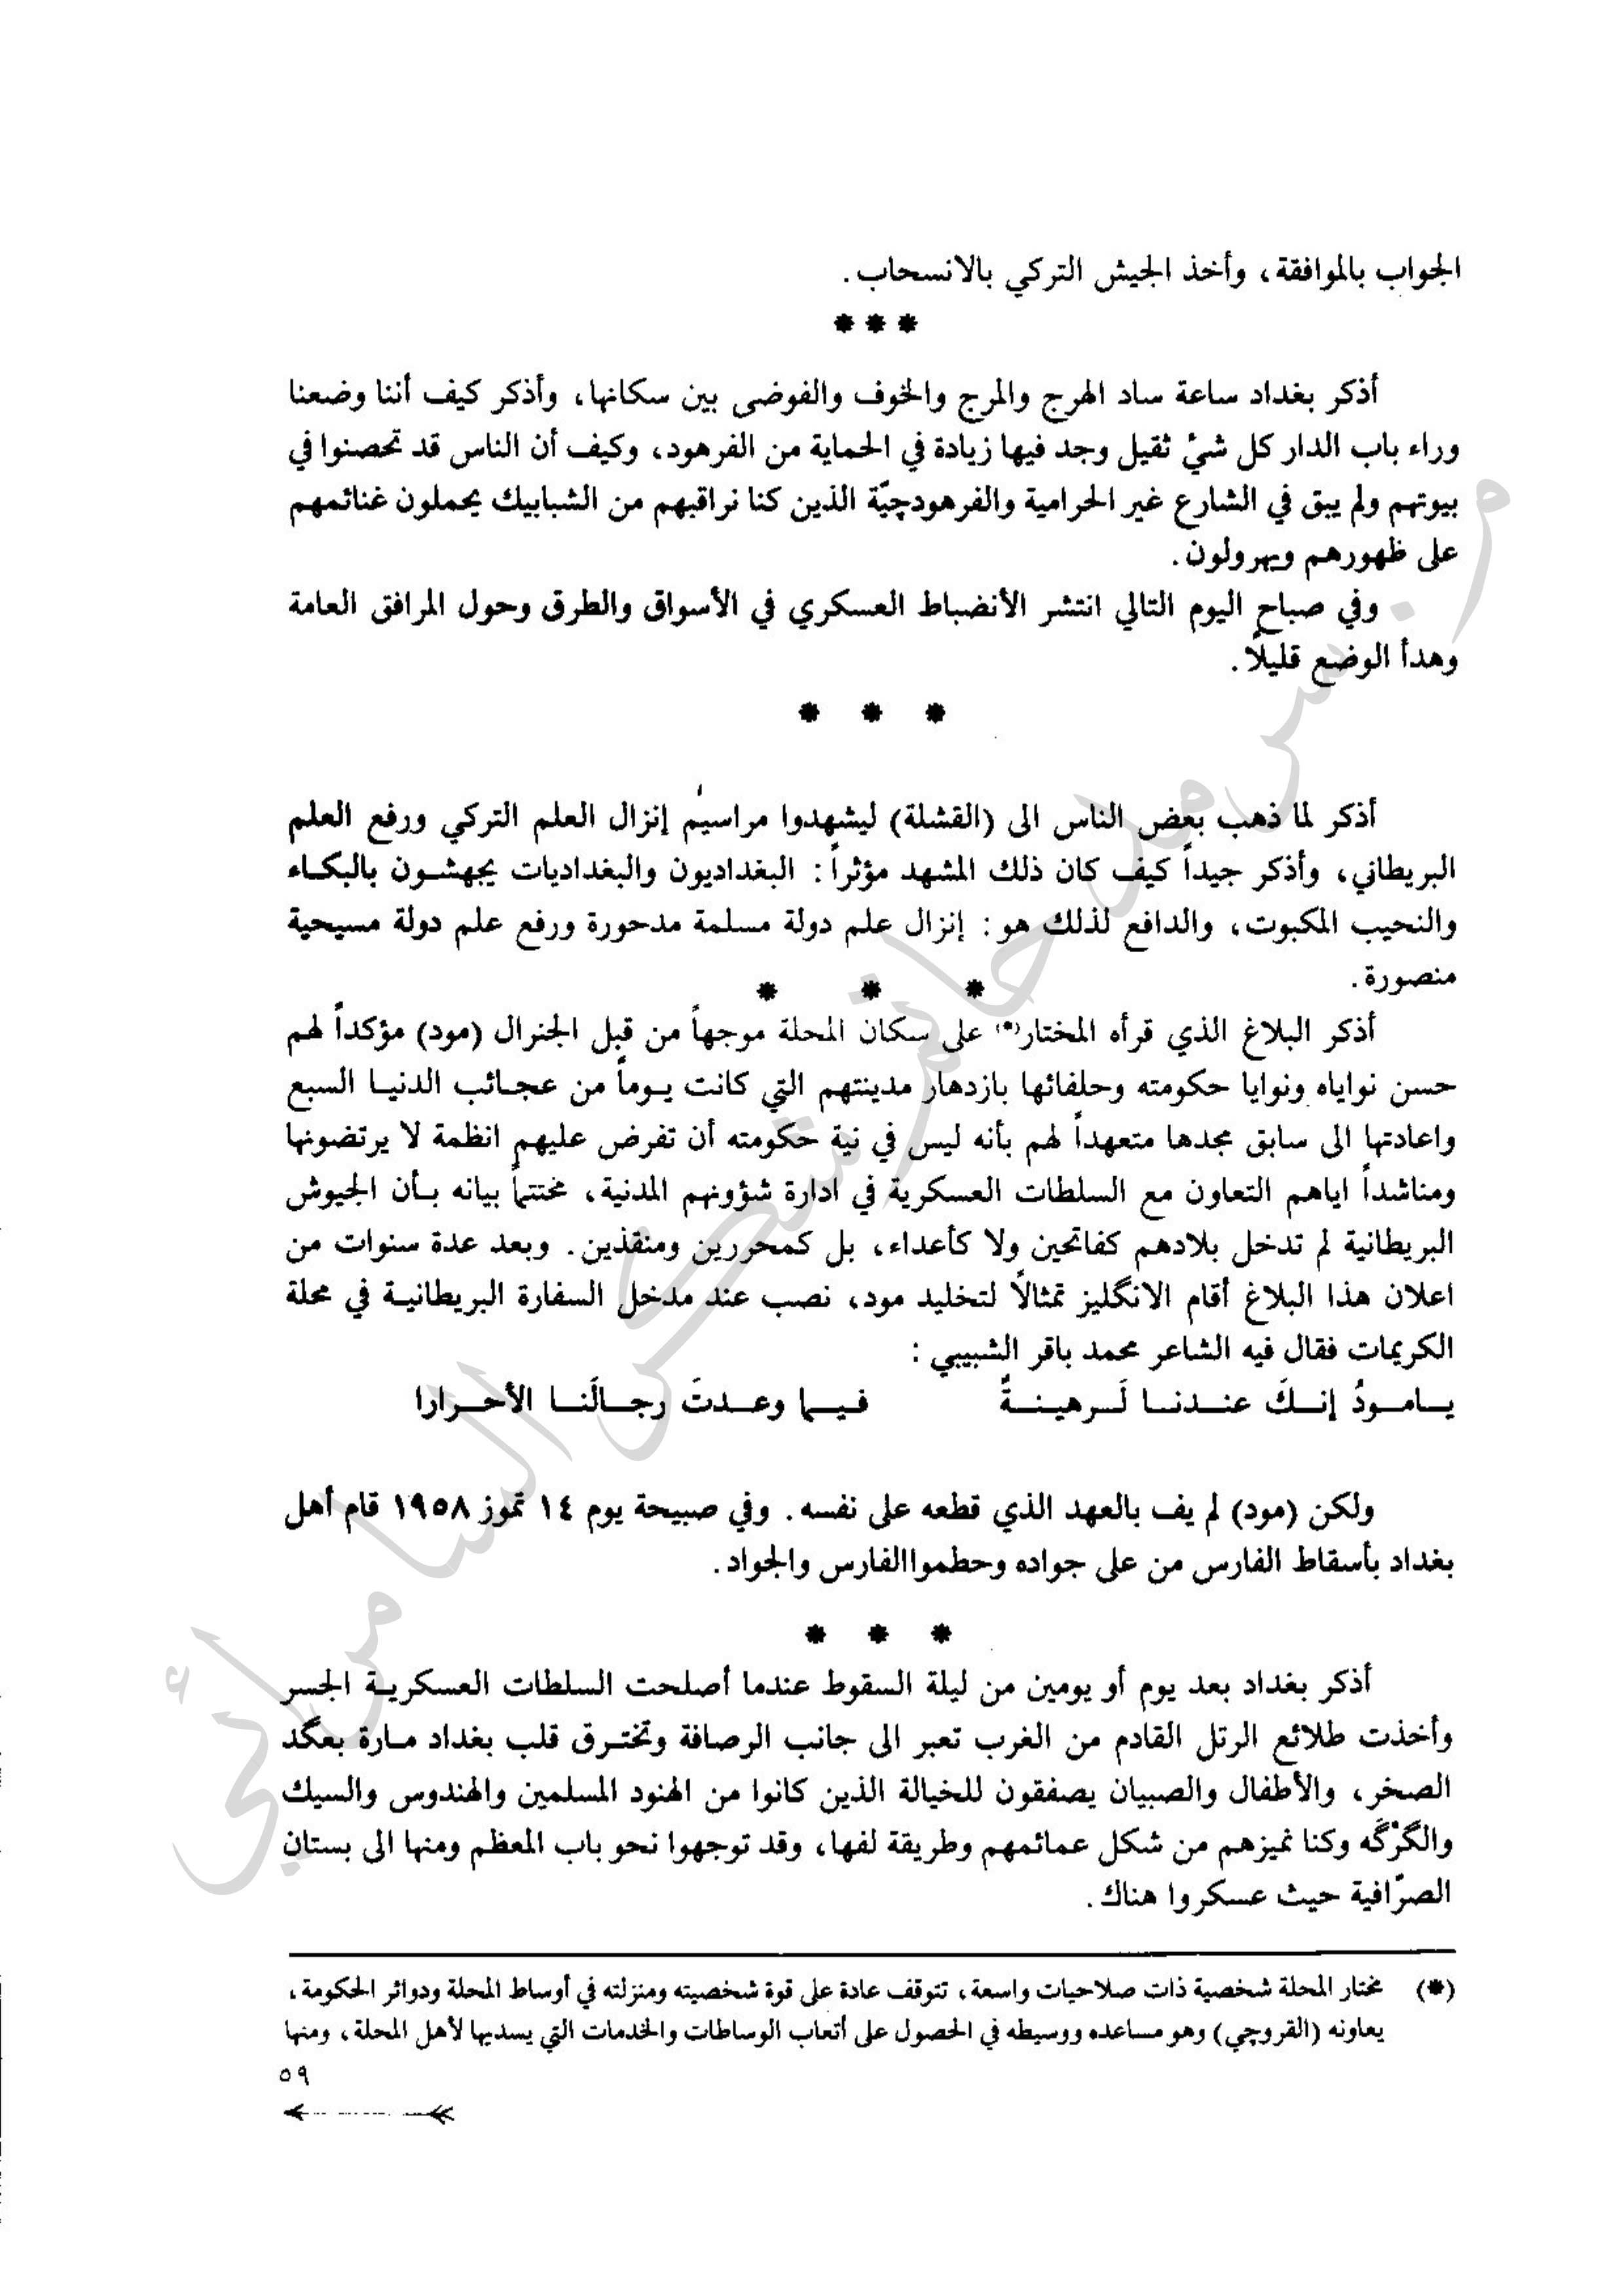 الجواب بالموافقة، وأخذ الجيش التركي بالانسحاب.
* * *
أذكر بغداد ساعة ساد الهرج والمرج والخوف والفوضى بين سكانها، وأذكر كيف أننا وضعنا
وراء باب الدار كل شيْ ثقيل وجد فيها زيادة في الحماية من الفرهود، وكيف أن الناس قد تحصنوا في
بيوتهم ولم يبق في الشارع غير الحرامية والفرهودچيّة الذين كنا نراقبهم من الشبابيك يحملون غنائمهم
على ظهورهم ويهرولون.
وفي صباح اليوم التالي انتشر الأنضباط العسكري في الأسواق والطرق وحول المرافق العامة
وهدأ الوضع قليلاً.
* * *
أذكر لما ذهب بعض الناس الى (القشلة) ليشهدوا مراسيم إنزال العلم التركي ورفع العلم
البريطاني، وأذكر جيداً كيف كان ذلك المشهد مؤثراً: البغداديون والبغداديات يجهشون بالبكاء
والنحيب المكبوت، والدافع لذلك هو: إنزال علم دولة مسلمة مدحورة ورفع علم دولة مسيحية
منصورة.
* * *
أذكر البلاغ الذي قرأه المختار(*) على سكان المحلة موجهاً من قبل الجنرال (مود) مؤكداً لهم
حسن نواياه ونوايا حكومته وحلفائها بازدهار مدينتهم التي كانت يوماً من عجائب الدنيا السبع
واعادتها الى سابق مجدها متعهداً لهم بأنه ليس في نية حكومته أن تفرض عليهم انظمة لا يرتضونها
ومناشداً اياهم التعاون مع السلطات العسكرية في ادارة شؤونهم المدنية، مختتماً بيانه بأن الجيوش
البريطانية لم تدخل بلادهم كفاتحين ولا كأعداء، بل كمحررين ومنقذين. وبعد عدة سنوات من
اعلان هذا البلاغ أقام الانگليز تمثالاً لتخليد مود، نصب عند مدخل السفارة البريطانية في محلة
الكريمات فقال فيه الشاعر محمد باقر الشبيبي:
يامودُ إنكَ عندنا لَرهينةٌ فيما وعدتَ رجالَنا الأحرارا
ولكن (مود) لم يف بالعهد الذي قطعه على نفسه. وفي صبيحة يوم ١٤ تموز ١٩٥٨ قام أهل
بغداد بأسقاط الفارس من على جواده وحطمواالفارس والجواد.
* * *
أذكر بغداد بعد يوم أو يومين من ليلة السقوط عندما أصلحت السلطات العسكرية الجسر
وأخذت طلائع الرتل القادم من الغرب تعبر الى جانب الرصافة وتخترق قلب بغداد مارة بعگد
الصخر، والأطفال والصبيان يصفقون للخيالة الذين كانوا من الهنود المسلمين والهندوس والسيك
والگرْگه وكنا نميزهم من شكل عمائمهم وطريقة لفها، وقد توجهوا نحو باب المعظم ومنها الى بستان
الصرّافية حيث عسكروا هناك.
(*) مختار المحلة شخصية ذات صلاحيات واسعة، تتوقف عادة على قوة شخصيته ومنزلته في أوساط المحلة ودوائر الحكومة،
يعاونه (القروچي) وهو مساعده ووسيطه في الحصول على أتعاب الوساطات والخدمات التي يسديها لأهل المحلة، ومنها
٥٩